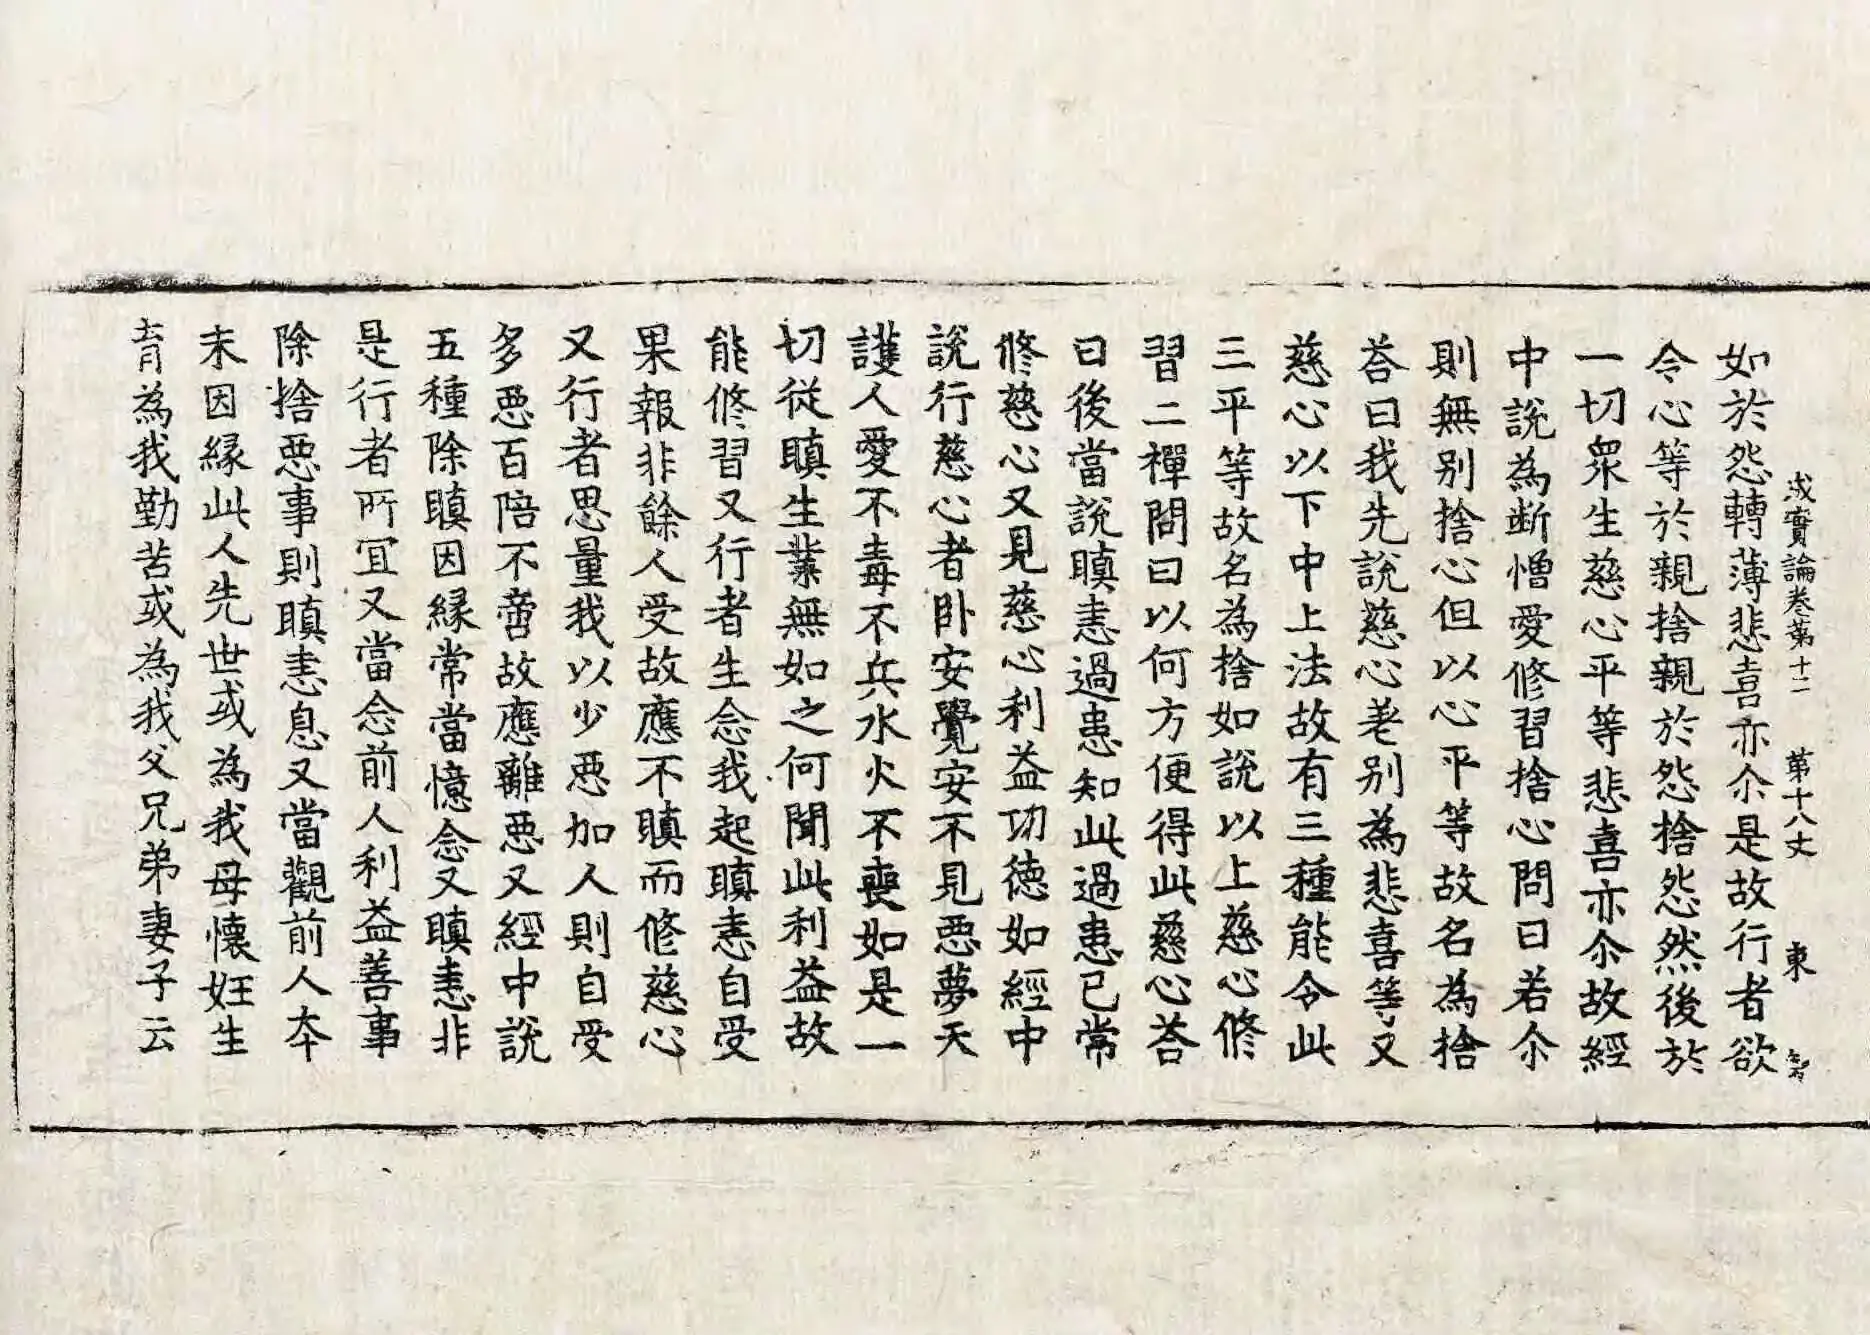 成實論卷第十二　第十八丈　東
如於怨轉薄悲喜亦尒是故行者欲
令心等於親捨親於怨捨怨然後於
一切衆生慈心平等悲喜亦尒故經
中說為断憎愛修習捨心問曰若尒
則無別捨心但以心平等故名為捨
荅曰我先說慈心差別為悲喜等又
慈心以下中上法故有三種能令此
三平等故名為捨如說以上慈心修
習二禪問曰以何方便得此慈心荅
曰後當說瞋恚過患知此過患已常
修慈心又見慈心利益功德如經中
說行慈心者卧安覺安不見惡夢天
護人愛不毒不兵水火不喪如是一
切從瞋生業無如之何聞此利益故
能修習又行者生念我起瞋恚自受
果報非餘人受故應不瞋而修慈心
又行者思量我以少惡加人則自受
多惡百陪不啻故應離惡又經中說
五種除瞋因縁常當憶念又瞋恚非
是行者所冝又當念前人利益善事
除捨惡事則瞋恚息又當觀前人夲
末因縁此人先世或為我母懷妊生
育為我勤苦或為我父兄弟妻子云